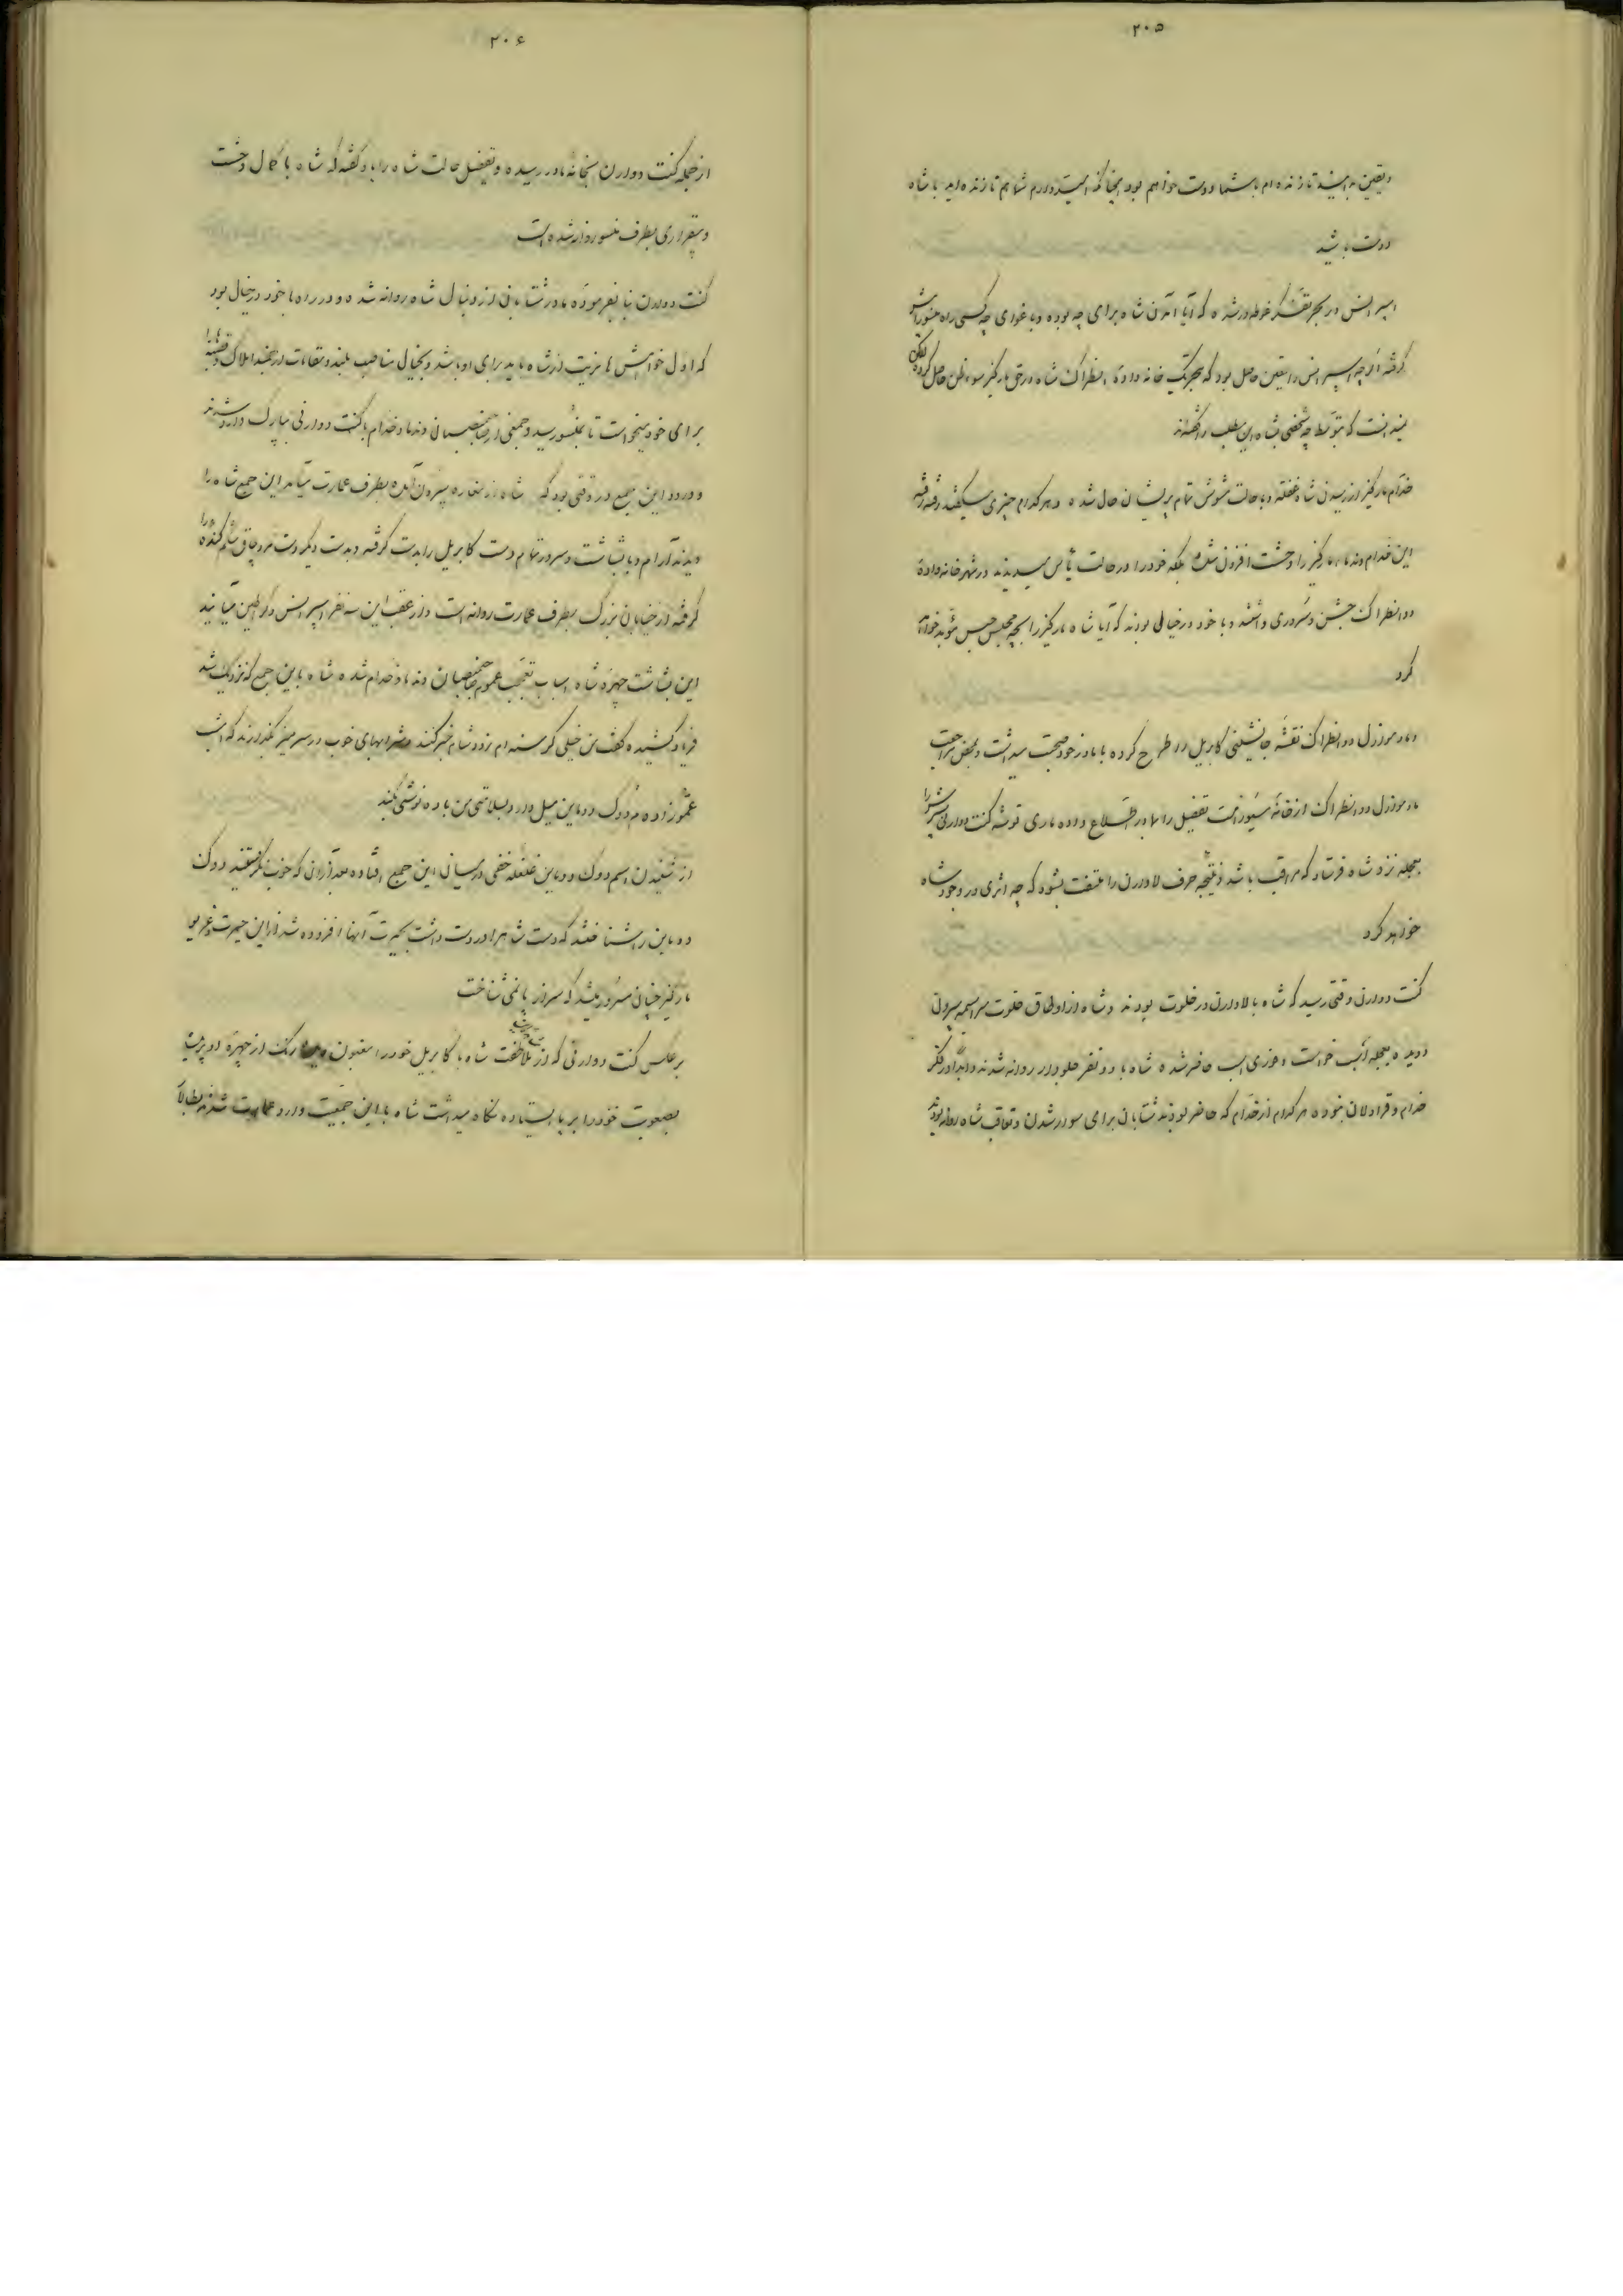 ۲۰۵
و یقین بدانید تا زنده‌ام با شما دوست خواهم بود چنانکه امیدوارم شما هم تا زنده‌اید با شاه
دوست باشید
اسپرانس در بحر تفکر غوطه‌ور شده که آیا آمدن شاه برای چه بوده و باغوای چه کسی راه
گرفته اگرچه اسپرانس را یقین حاصل بود که بتحریک خانواده انطراک شاه در حق مارکیز سوء ظن حاصل کرده لیکن
نمیدانست که بتوسط چه شخصی بشاه این مطلب را گفته‌اند
خدام مارکیز از رسیدن شاه غفلة و با حالت مشوش تمام پریشان حال شده و هر کدام چیزی میگفتند رفته رفته
این خدام و ندماء مارکیز را وحشت افزون شده بلکه خود را در حالت یأس میدیدند در شهر خانواده
دو انطراک جشن و سروری داشتند و با خود در خیال بودند که آیا شاه مارکیز را بچه محبس حبس خواهد
کرد
مادموازل دو انطراک نقشه جانشینی کابریل را طرح کرده با مادر خود صحبت میداشت و بمحض مراجعت
مادموازل دو انطراک از خانه تفصیل را بمادر اطلاع داده ماری توشه کنت دوارنی پسرش را
بعجله نزد شاه فرستاد که مراقب باشد و نتیجه حرف لاوارن را ملتفت بشود که چه اثری در وجود شاه
خواهد کرد
کنت دوارنی وقتی رسید که شاه با لاوارن در خلوت بودند و شاه از اوطاق خلوت سراسیمه بیرون
دویده بعجله اسب خواست و فوری اسب حاضر شده شاه با دو نفر جلودار روانه شدند و ابدا در فکر
خدام و قراولان نبوده هر کدام از خدام که حاضر بودند شتابان برای سوار شدن و تعاقب شاه روانه بودند
۲۰۶
از جمله کنت دوارن بخانه مادر رسیده و تفصیل حالت شاه را باو گفته که شاه با کمال وحشت
و بیقراری بطرف منسو روانه شده است
کنت دوارن بنا بفرموده مادر شتابان از دنبال شاه روانه شده و در راه با خود در خیال بود
که اول خواهش با مزیت از شاه باید برای او باشد و بخیال مناصب بلند و مقامات ارجمند املاک
برای خود میخواست تا بمنسو رسید و جمعی از صاحبمنصبان و ندماء و خدام با کنت دوارنی بپارک وارد شدند
و ورود این جمع در وقتی بود که شاه از مغاره بیرون آمده بطرف عمارت میآمد این جمع شاه را
دیدند آرام و با بشاشت و سرور تمام دست کابریل را بدست گرفته و بدست دیگر دست مرد چاق
گرفته از خیابان بزرگ بطرف عمارت روانه است و از عقب این سه نفر اسپرانس و میآیند
این بشاشت چهره شاه اسباب تعجب عموم صاحبمنصبان و ندماء و خدام شده شاه باین جمع که نزدیک شد
فریاد کشیده گفت من خیلی گرسنه‌ام زود شام خبر کنند و شرابهای خوب در سر میز بگذارند که امشب
عموزاده‌ام دوک دوماین میل دارد بسلامتی من باده نوشی بکند
از شنیدن اسم دوک دوماین غلغله خفی در میان این جمع افتاده بعد از آن که خوب نگریستند دوک
دوماین را شناختند که دست شاه را در دست داشت بحیرت آنها افزوده شد از این حیرت و غریو
مارکیز چنان مسرور میشد که سر از پا نمی شناخت
بر عکس کنت دوارنی که از ملاطفت شاه با کابریل خود را مغبون رنگ از چهره او پریده
بصعوبت خود را بر پا ایستاده نگاه میداشت شاه با این جمعیت وارد عمارت شدند